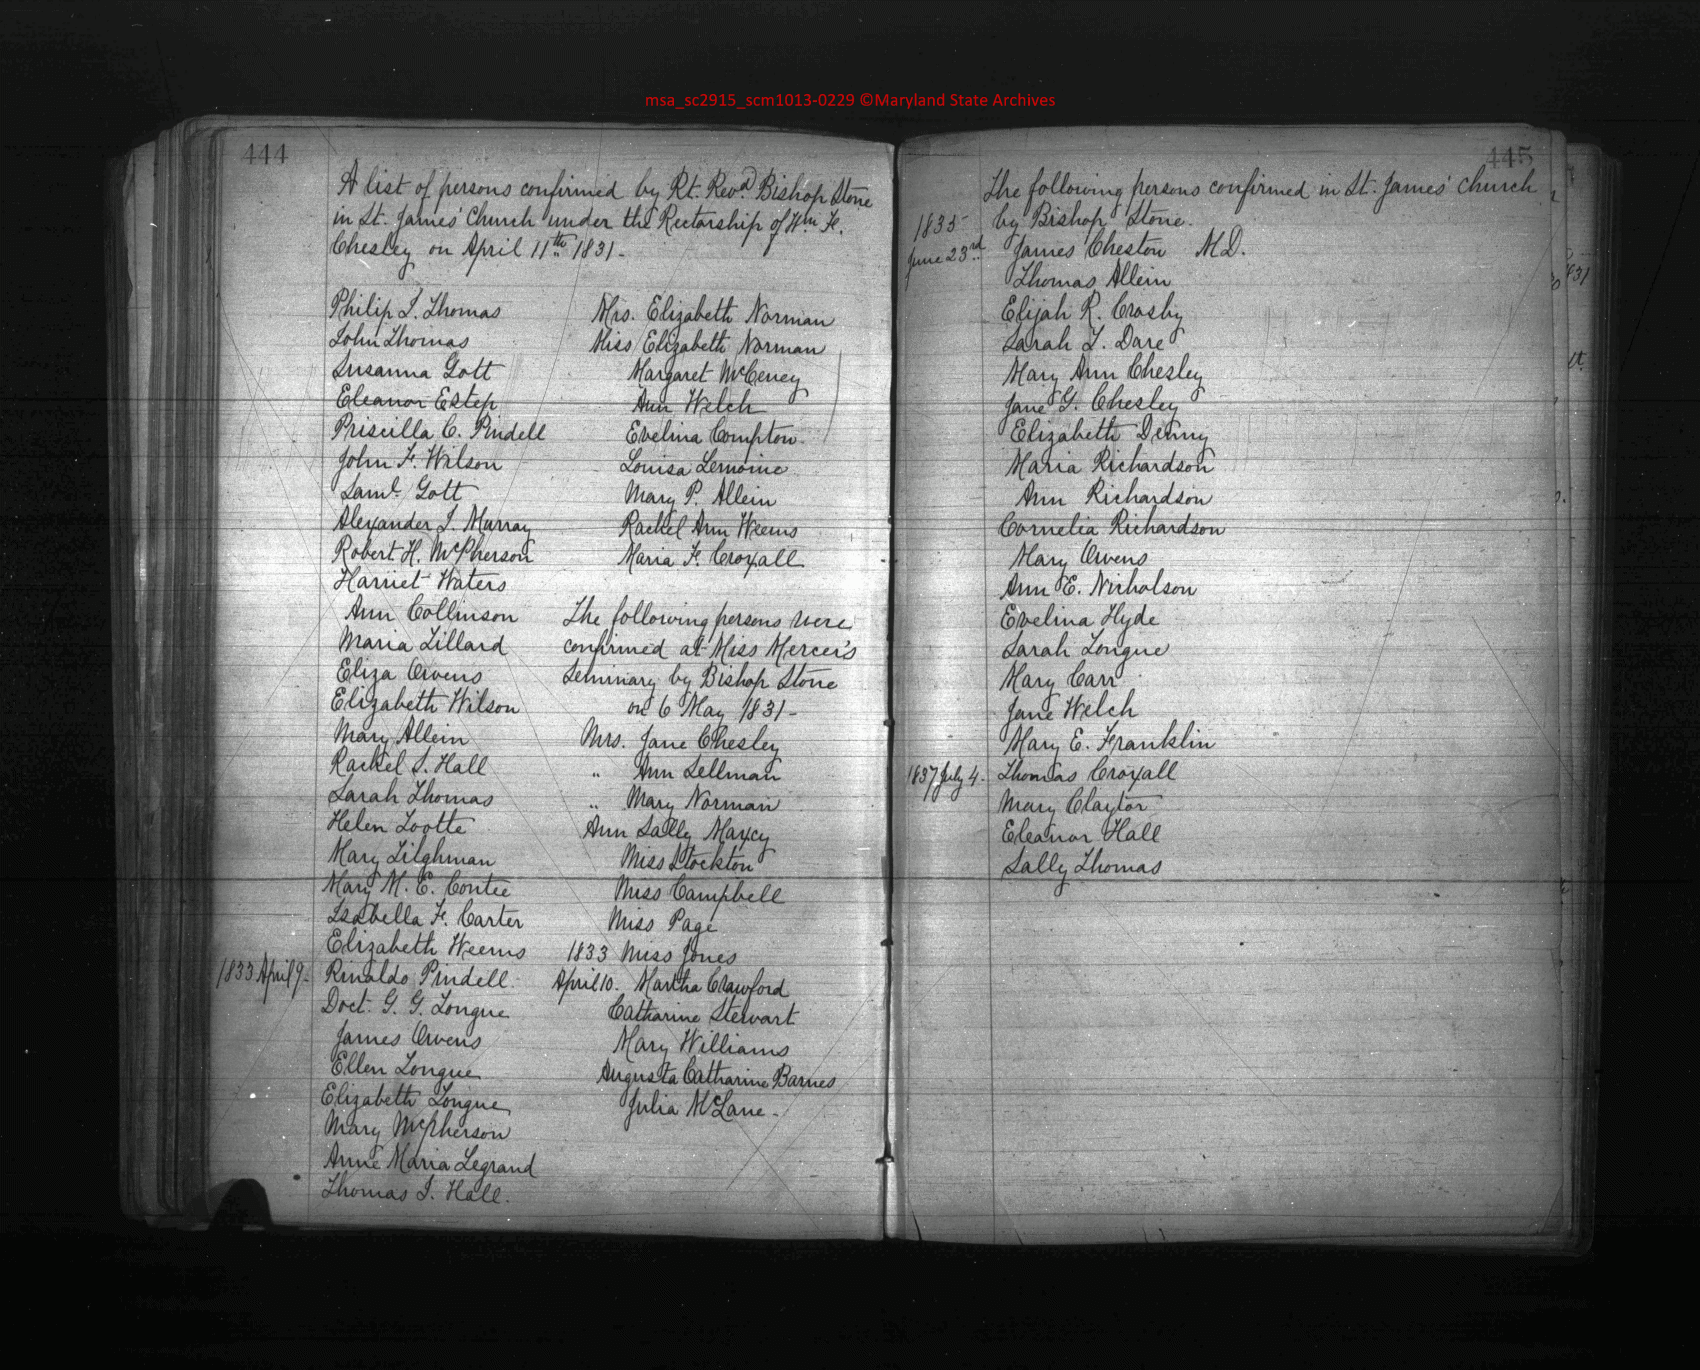 msa_sc2915_scm1013-0229 ©Maryland State Archives
444
A list of persons confirmed by Rt. Revd. Bishop Stone
in St. James' Church under the Rectorship of Wm. F.
Chesley on April 11th 1831-
Philip I. Thomas
John Thomas
Susanna Gott
Eleanor Estep
Priscilla C. Pindell
John F. Wilson
Saml. Gott
Alexander I. Murray
Robert H. McPherson
Harriet Waters
Ann Collinson
Maria Lillard
Eliza Owens
Elizabeth Wilson
Mary Allein
Rachel S. Hall
Sarah Thomas
Helen Tootte
Mary Tilghman
Mary M. E. Contee
Isabella F. Carter
Elizabeth Weems
1833 April 9- Rinaldo Pindell
Doct. G. G. Longue
James Owens
Ellen Longue
Elizabeth Longue
Mary McPherson
Anne Maria Legrand
Thomas I. Hall.
Mrs. Elizabeth Norman
Miss Elizabeth Norman
Margaret McCeney
Ann Welch
Evelina Compton
Louisa Lemoine
Mary P. Allein
Rachel Ann Weems
Maria F. Croxall
The following persons were
confirmed at Miss Mercer's
Seminary by Bishop Stone
on 6 May 1831-
Mrs. Jane Chesley
" Ann Sellman
" Mary Norman
Ann Sally Maxcy
Miss Stockton
Miss Campbell
Miss Page
1833 Miss Jones
April 10. Martha Crawford
Catharine Stewart
Mary Williams
Augusta Catharine Barnes
Julia McLane-
445
The following persons confirmed in St. James' Church
1835- by Bishop Stone.
June 23rd James Cheston M.D.
Thomas Allein
Elijah R. Crosby
Sarah T. Dare
Mary Ann Chesley
Jane G. Chesley
Elizabeth Denny
Maria Richardson
Ann Richardson
Cornelia Richardson
Mary Owens
Ann E. Nicholson
Evelina Hyde
Sarah Longue
Mary Carr
Jane Welch
Mary E. Franklin
1837 July 4. Thomas Croxall
Mary Claytor
Eleanor Hall
Sally Thomas